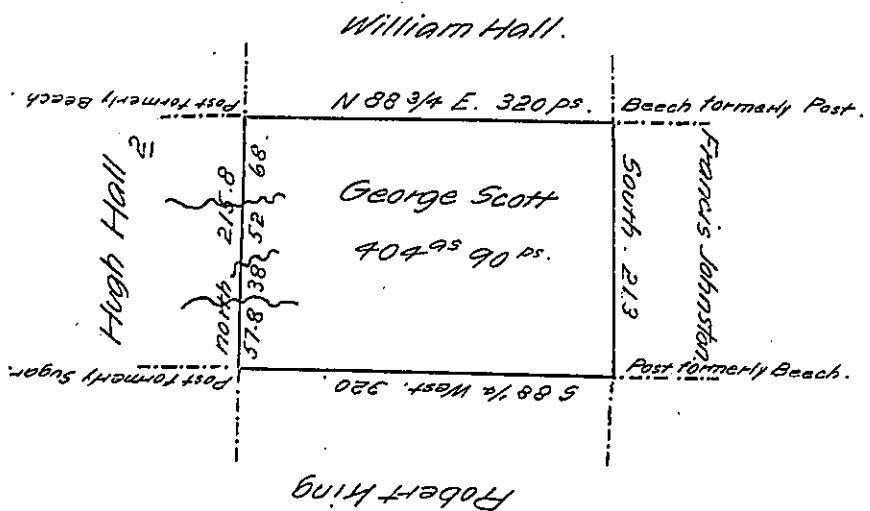 William Hall.
Post formerly Beech.
N 88 3/4 E. 320 ps.
Beech formerly Post.
Hugh Hall
2
north 215.8
57.8 38 52 68.
George Scott
404 as 90 ps.
South. 213
Francis Johnston.
Post formerly Sugar.
S 88 1/2 West. 320
Post formerly Beech.
Robert King